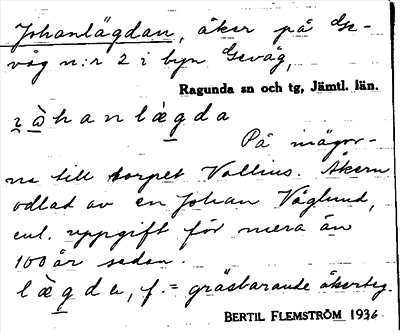 Johanlägdan, åker på Ge-
våg n:r 2 i byn Gevåg,
Ragunda sn och tg, Jämtl. län.
hanlægda
På mågor-
na till torpet Vallius. Åkern
odlad av en Johan Våglund,
enl. uppgift för mera än
100 år sedan.
lægda, f. = gräsbärande åkerteg.
BERTIL FLEMSTRÖM 1936